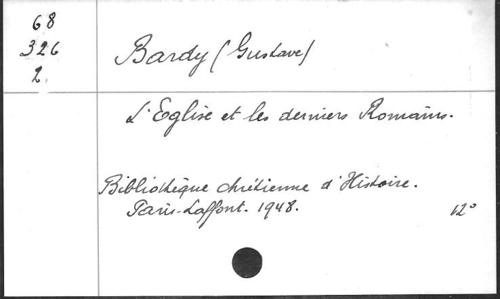 68
326
2.
Bardy (Gustave)
L'Eglise et les derniers Romains.
Bibliothèque chrétienne d'Histoire.
Paris-Laffont. 1948.
12°